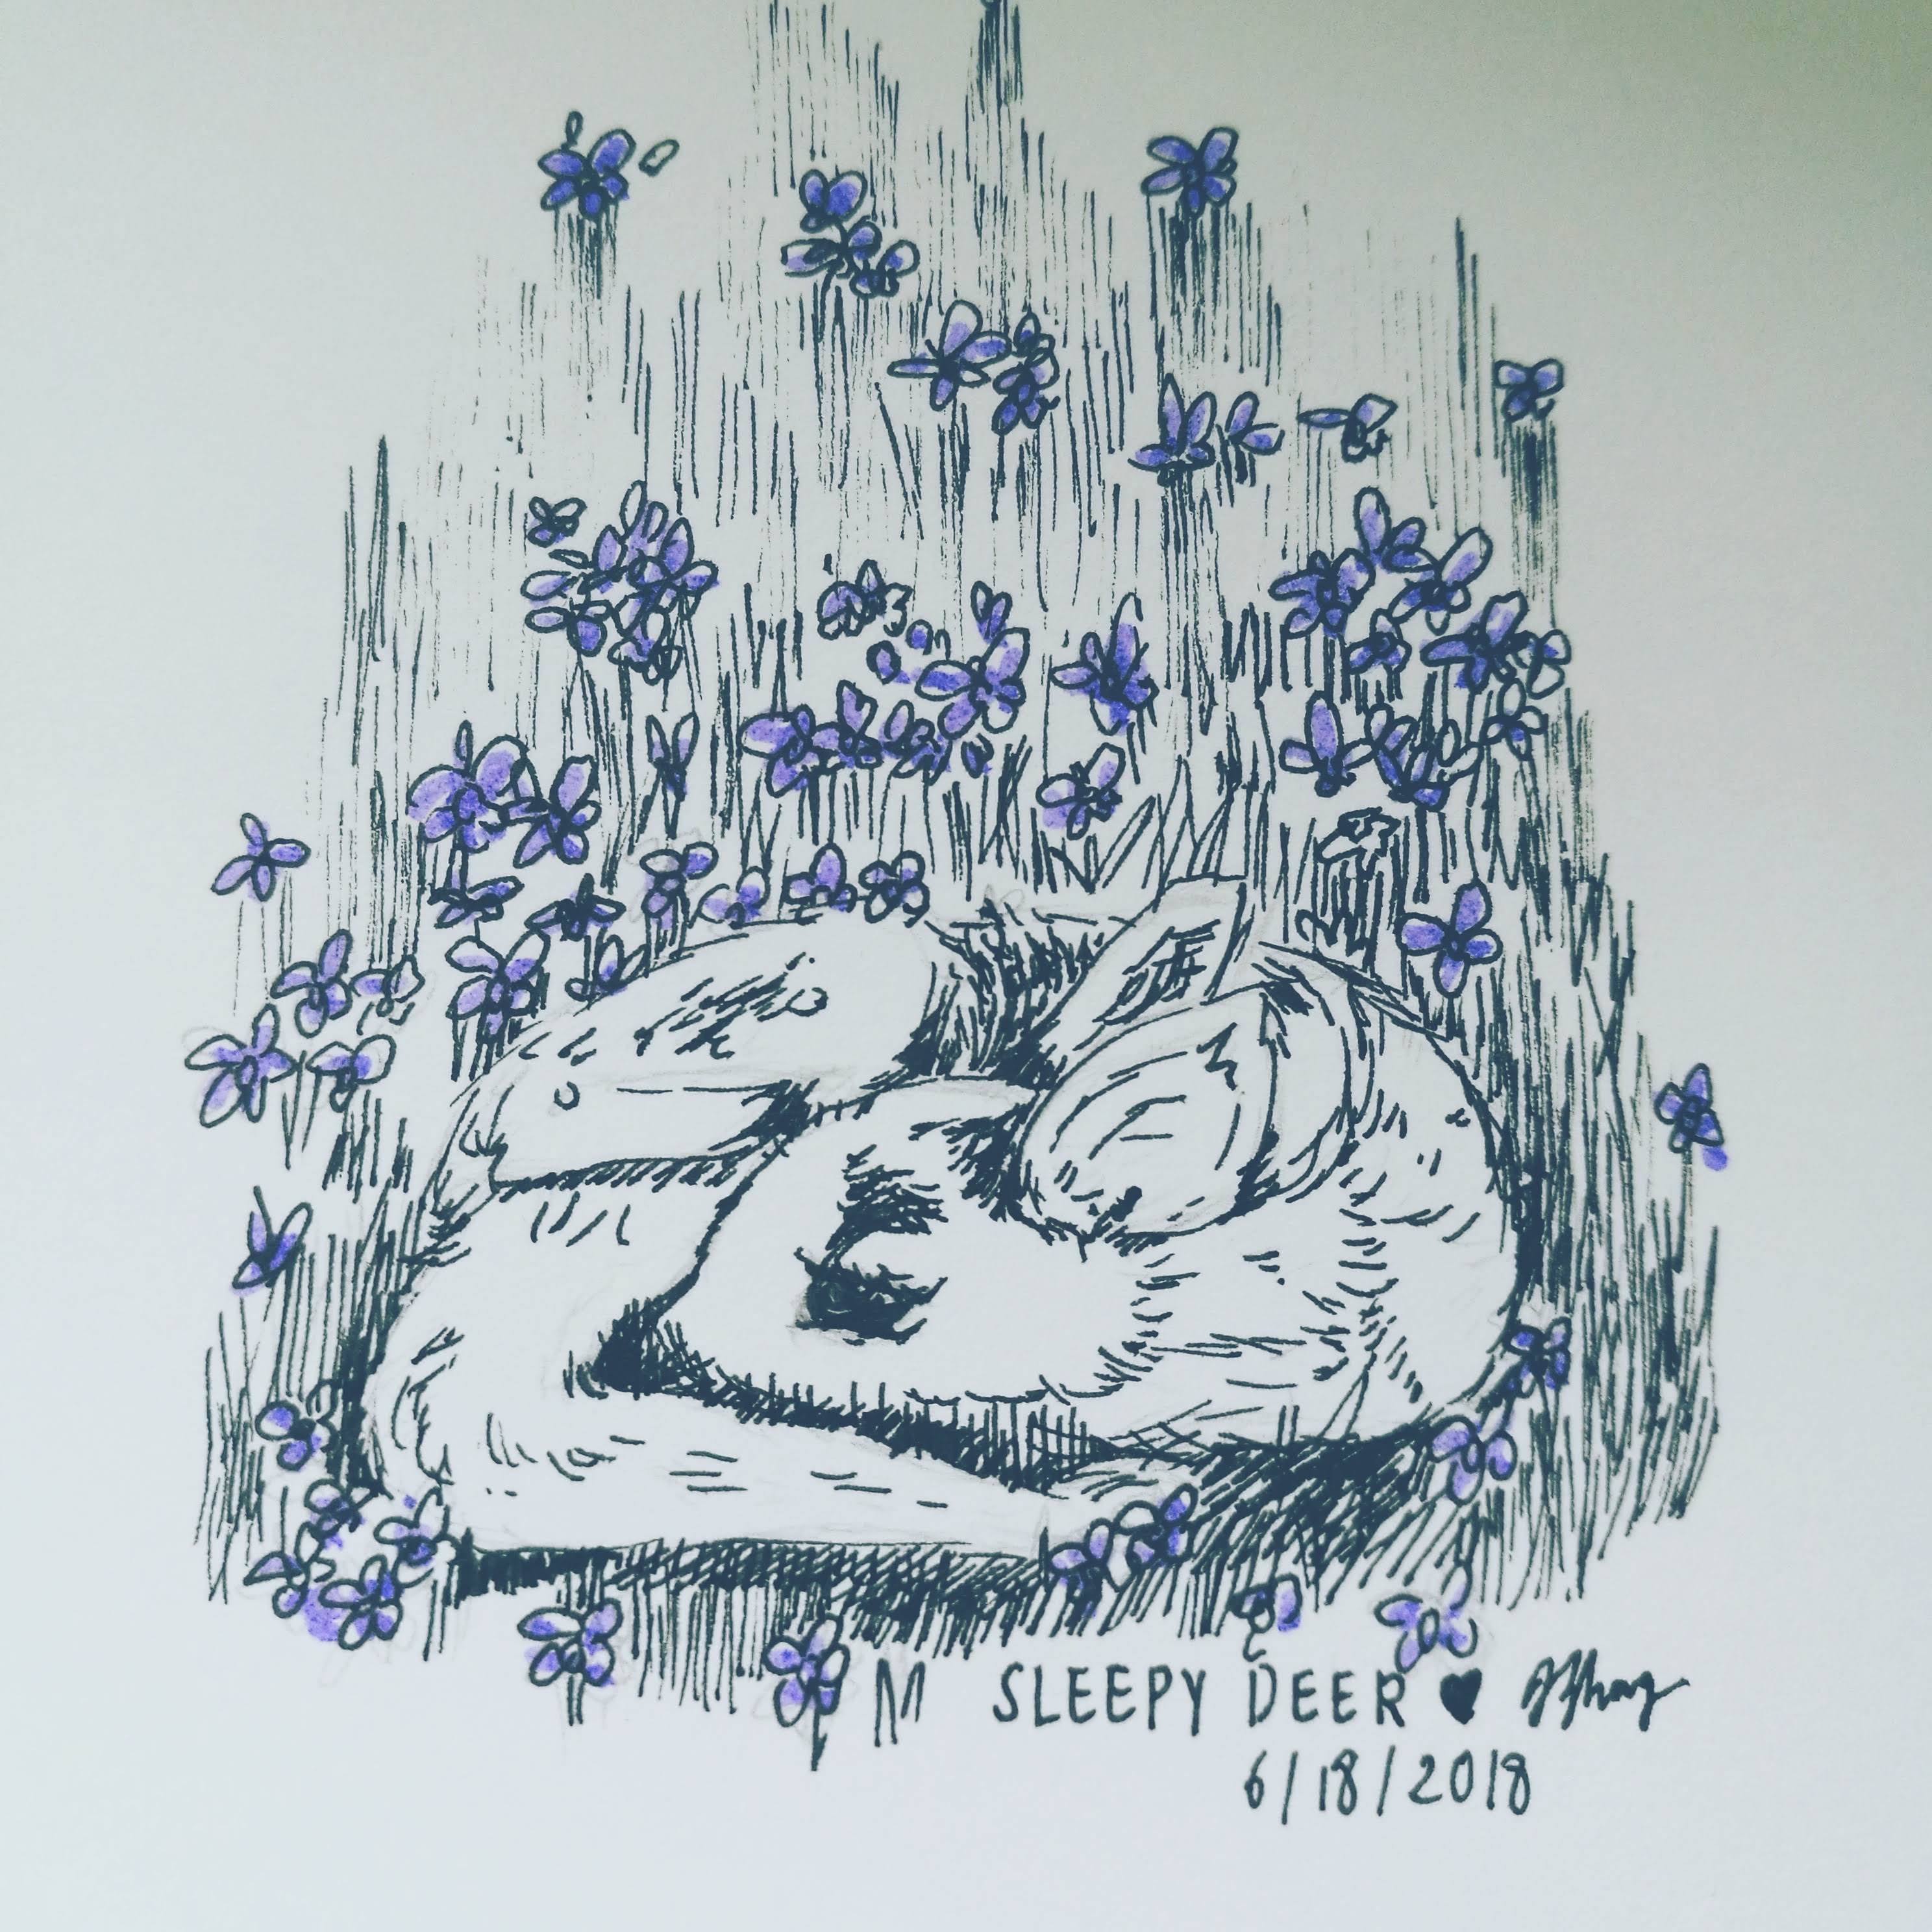 SLEEPY DEER ♥
6/18/2018